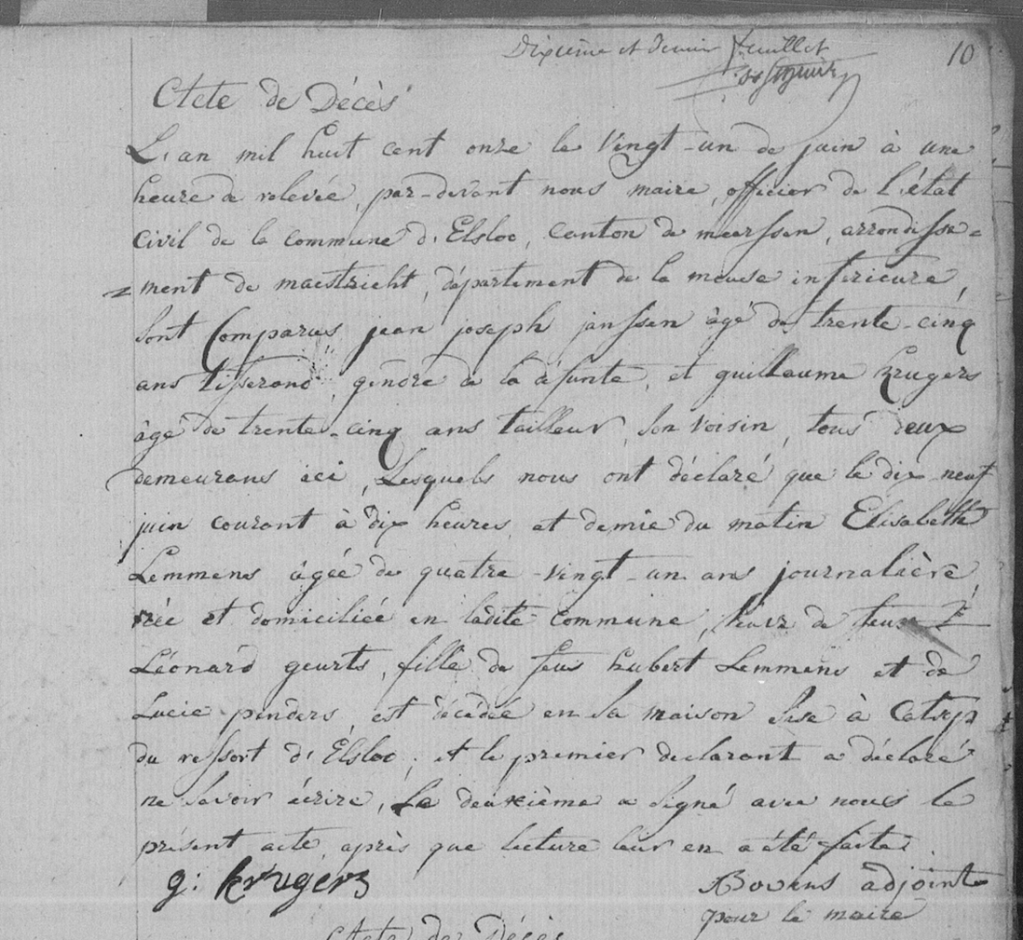 Dixième et dernier feuillet
10
Acte de Décès
L'an mil huit cent onze le vingt-un de juin à une
heure de relevée, par-devant nous maire, officier de l'état
Civil de la commune d'Elsloo, canton de meerssen, arrondisse=
=ment de maestricht, département de la meuse inférieure,
sont Comparus jean joseph janssen âgé de trente-cinq
ans tisserand, gendre de la défunte, et guillaume Krugers
âgé de trente-cinq ans tailleur, son voisin, tous deux
demeurans ici, Lesquels nous ont déclaré que le dix-neuf
juin courant à dix heures et demie du matin Elisabeth
Lemmens âgée de quatre-vingt-un ans journalière,
née et domiciliée en ladite commune, veuve de feu
Léonard geurts, fille de feu hubert Lemmens et de
Lucie penders, est décédée en sa maison sise à Catsop
du ressort d'Elsloo; et le premier declarant a déclaré
ne savoir écrire, Le deuxième a signé avec nous le
présent acte, après que lecture leur en a été faite.
g: krugers
Bovens adjoint
pour le maire
Acte de Décès